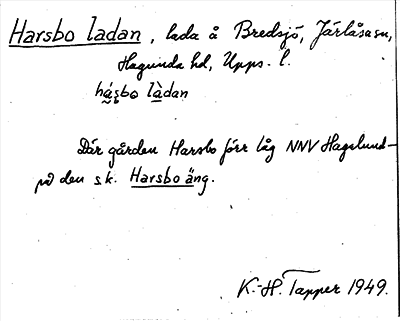 Harsbo ladan, lada å Bredsjö, Järlåsa sn,
Hagunda hd, Upps. l.
hás̬bo làdan
Där gården Harsbo förr låg NNV Hagslund–
på den s.k. Harsbo äng.
K.-H. Tapper 1949.